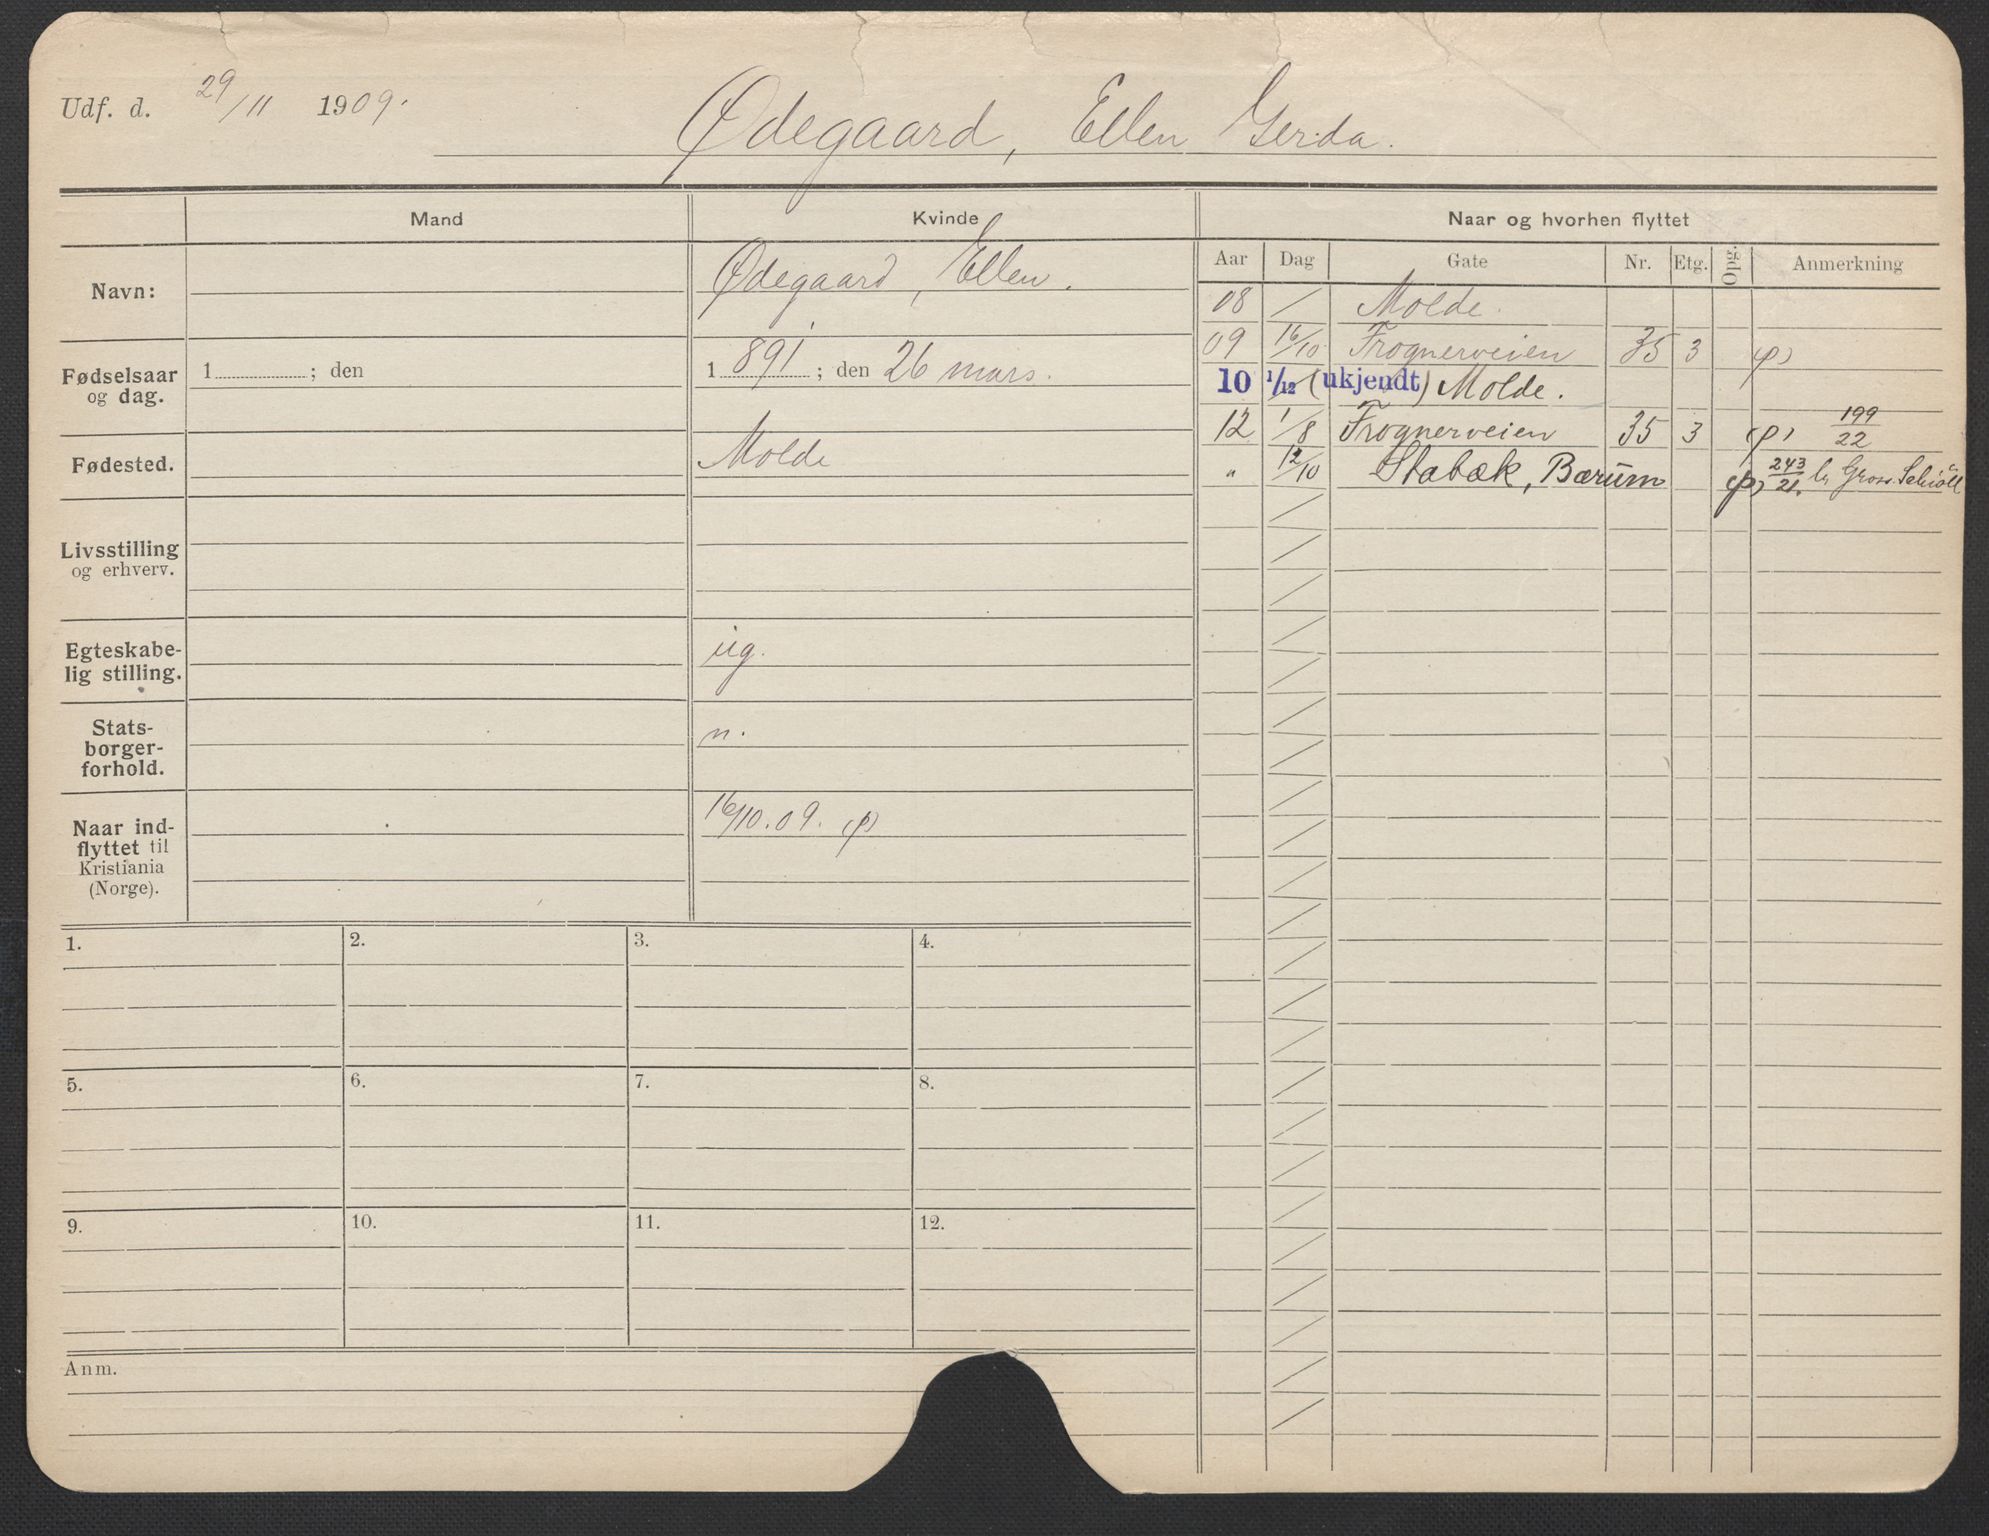 Udf. d. 29/11 1909.
Ødegaard, Ellen Gerda.
Mand
Kvinde
Naar og hvorhen flyttet
Aar Dag Gate Nr. Etg. Opg. Anmerkning
Navn:
Ødegaard, Ellen.
Fødselsaar
og dag.
1 ; den
1 891 ; den 26 mars.
Fødested.
Molde
Livsstilling
og erhverv.
Egteskabe-
lig stilling.
ug.
Stats-
borger-
forhold.
n.
Naar ind-
flyttet til
Kristiania
(Norge).
16/10.09. (p)
08 / Molde.
09 16/10 Frognerveien 35 3 (p)
10 1/12 (ukjendt) Molde.
12 1/8 Frognerveien 35 3 (p) 199/22
" 12/10 Stabæk, Bærum (p) 243/21.
1.
2.
3.
4.
5.
6.
7.
8.
9.
10.
11.
12.
Anm.